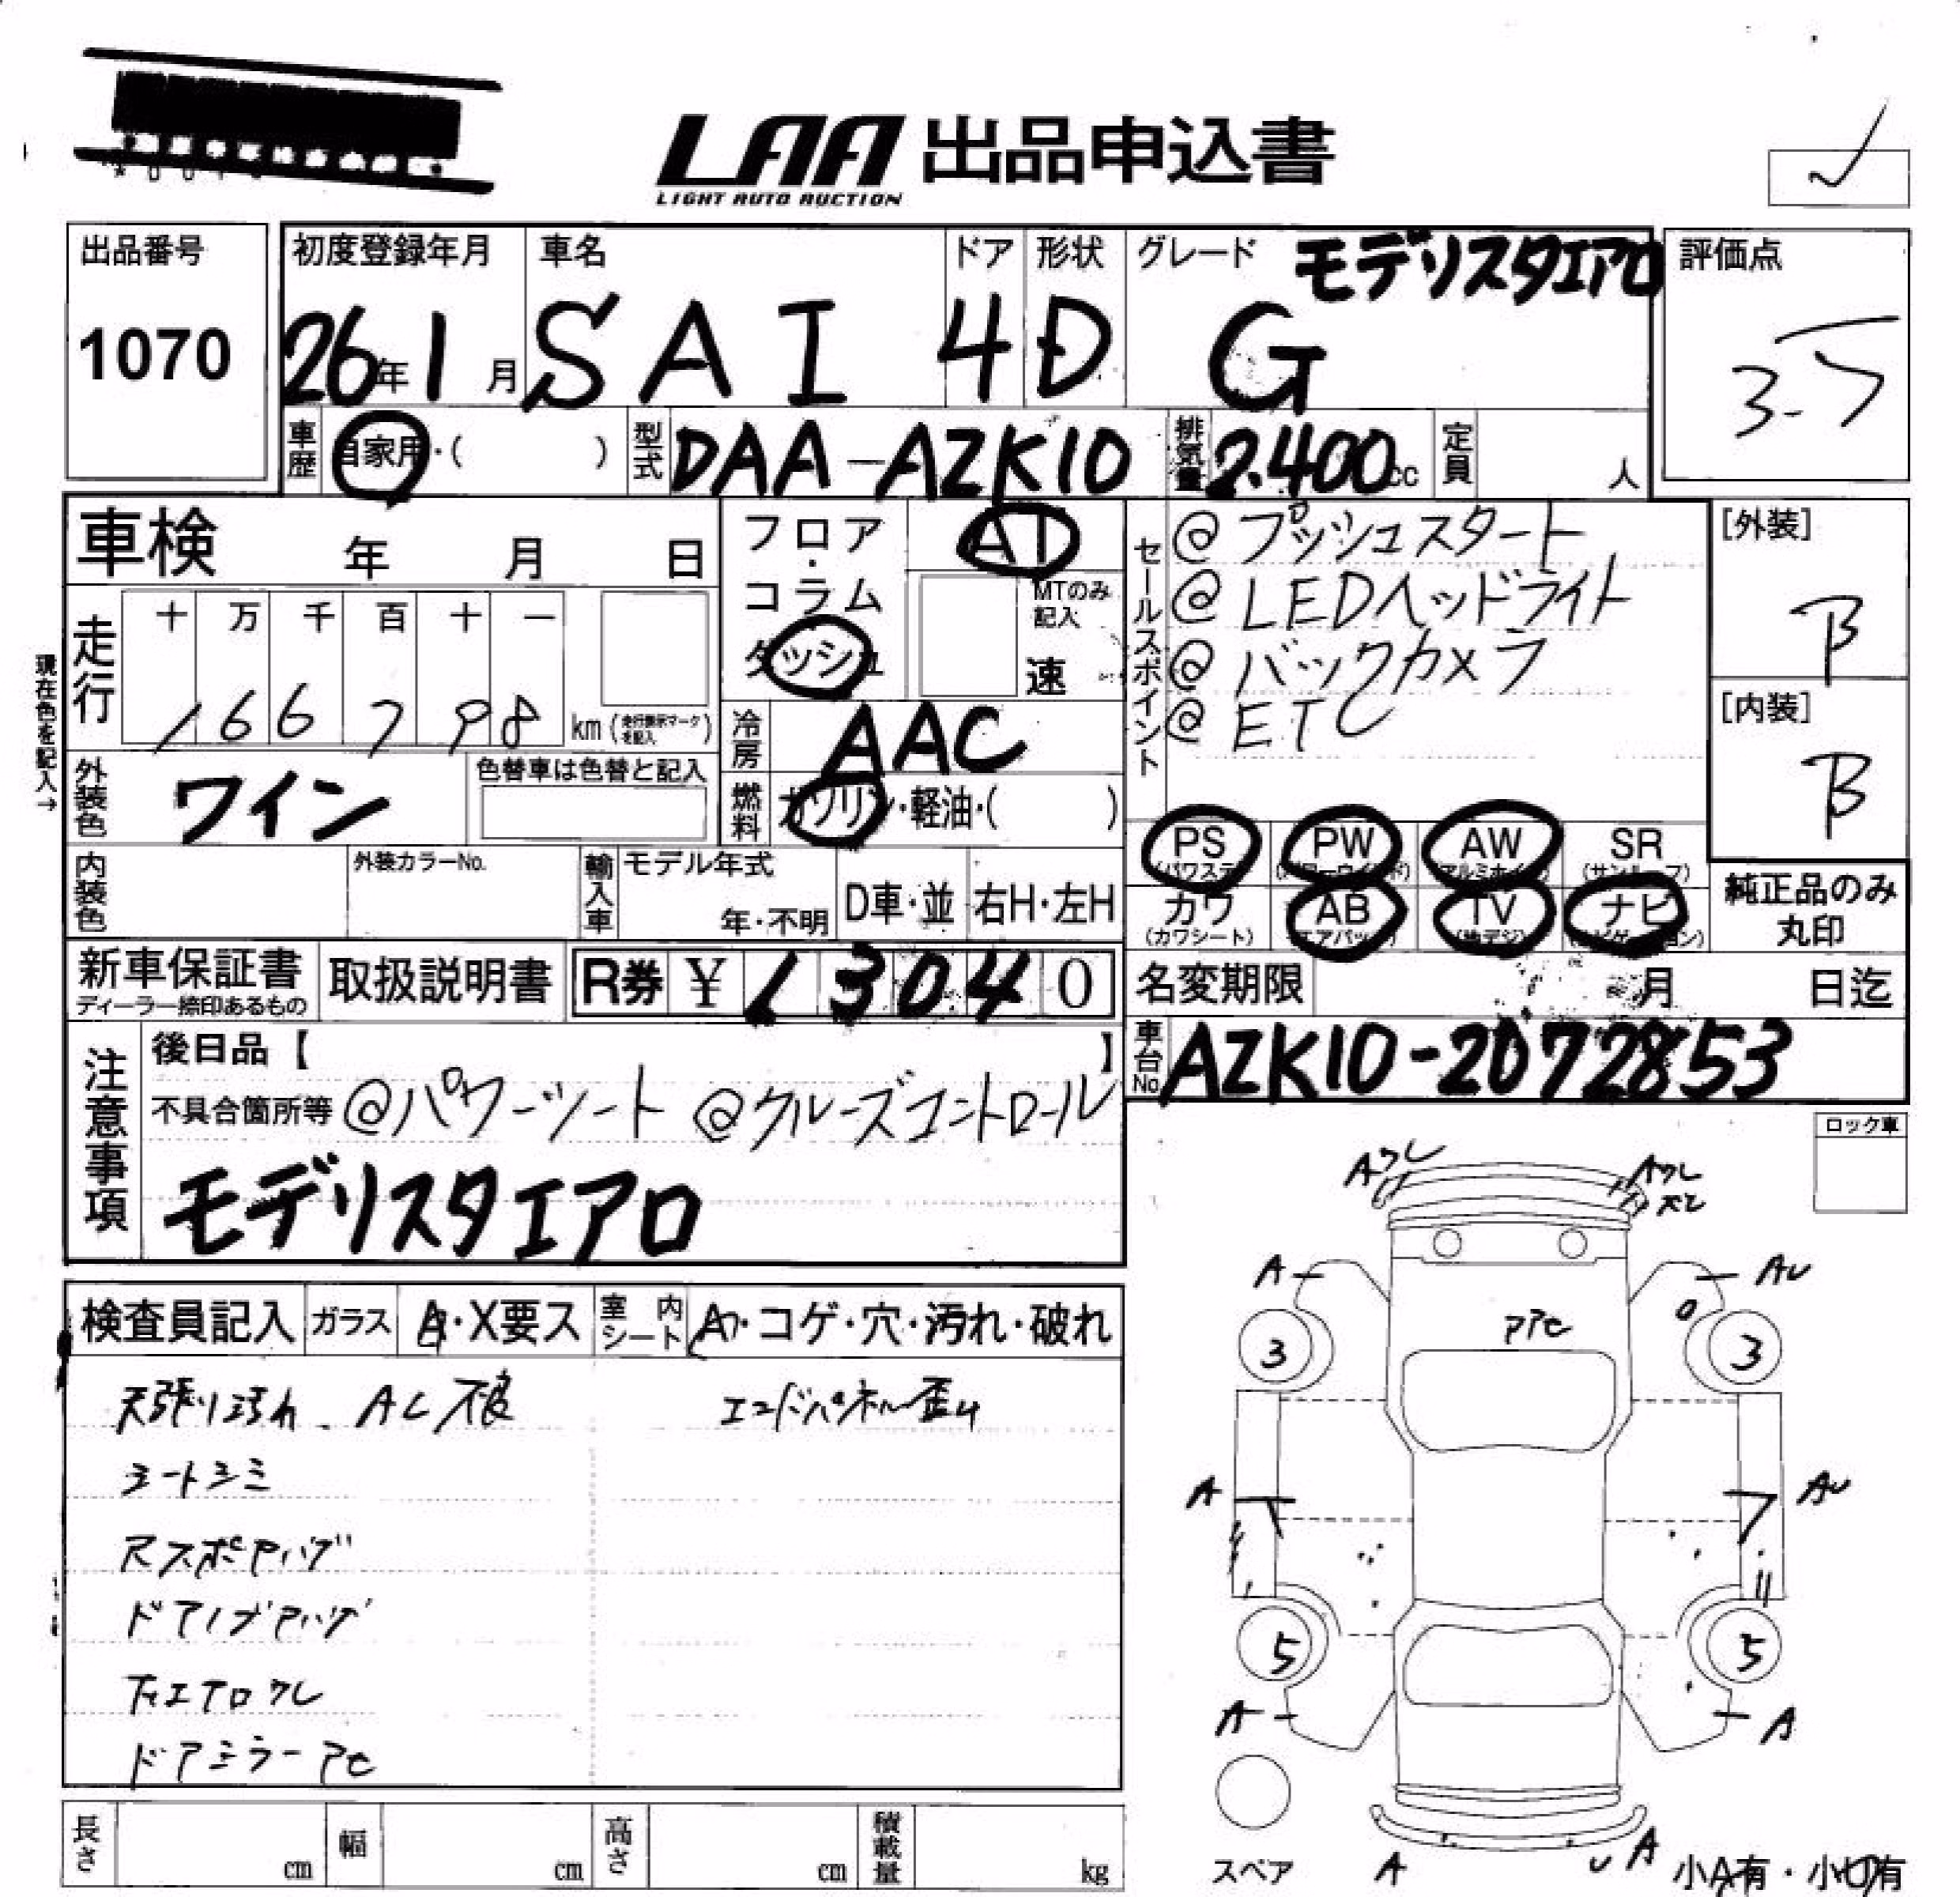 LAA 出品申込書
LIGHT AUTO AUCTION
出品番号
1070
初度登録年月
26年1月
車名
SAI
ドア
4
形状
D
グレード
モデリスタエアロ
G
評価点
3.5
車歴
自家用・( )
型式
DAA-AZK10
排気量
2.400cc
定員
人
車検 年 月 日
フロア・コラム
ダッシュ
AT
MTのみ記入
速
セールスポイント
@プッシュスタート
@LEDヘッドライト
@バックカメラ
@ETC
[外装]
B
[内装]
B
現在色を記入→
走行
十 万 千 百 十 一
1 6 6 7 9 8 km (走行表示マークを記入)
冷房
AAC
外装色
ワイン
色替車は色替と記入
燃料
ガソリン・軽油・( )
PS (パワステ)
PW (パワーウインド)
AW (アルミホイル)
SR (サンルーフ)
カワ (カワシート)
AB (エアバック)
TV (地デジ)
ナビ (ナビゲーション)
純正品のみ
丸印
内装色
外装カラーNo.
輸入車
モデル年式
年・不明
D車・並
右H・左H
新車保証書
ディーラー捺印あるもの
取扱説明書
R券 ¥ 1 3 0 4 0
名変期限 月 日迄
車台No.
AZK10-2072853
注意事項
後日品【 】
不具合箇所等 @パワーシート @クルーズコントロール
モデリスタエアロ
ロック車
検査員記入
ガラス
A・X要ス
室内シート
・コゲ・穴・汚れ・破れ
天張り汚れ AC不良
エンドパネル歪み
シートシミ
ドアノブ
下エアロワレ
ドアミラー
Aワレ
Aワレ
ズレ
A
AU
3
3
A
AU
5
5
A
A
スペア
A
U A
小A有・小U有
長さ cm
幅 cm
高さ cm
積載量 kg